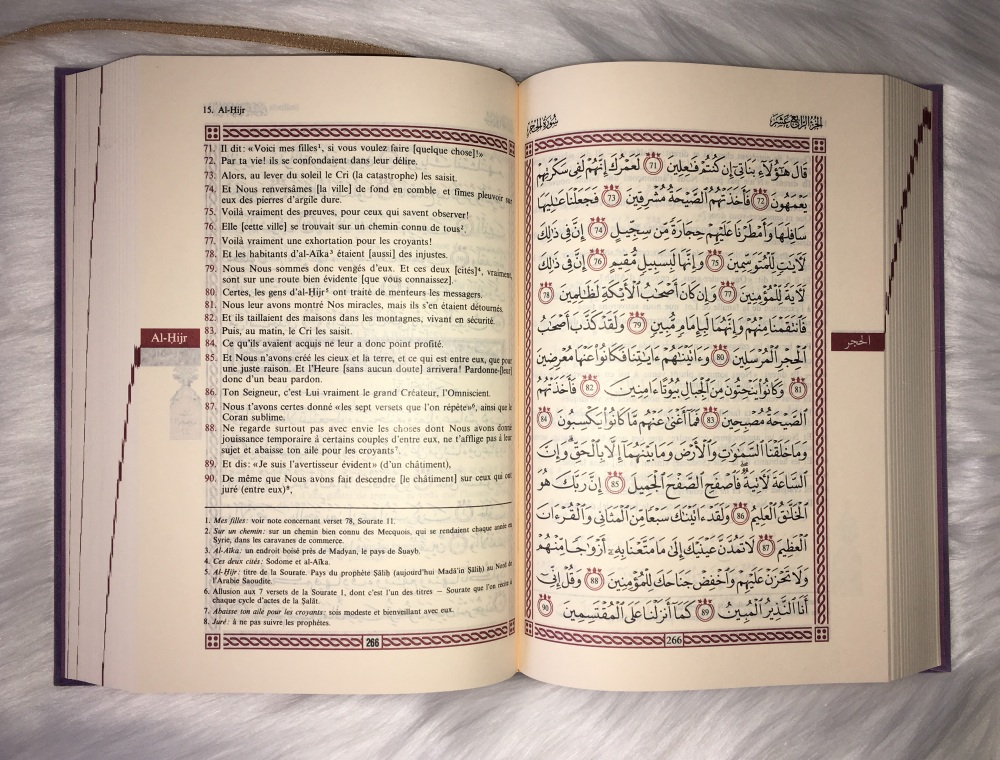 15. Al-Ḥijr
71. Il dit: «Voici mes filles¹, si vous voulez faire [quelque chose]!»
72. Par ta vie! ils se confondaient dans leur délire.
73. Alors, au lever du soleil le Cri (la catastrophe) les saisit.
74. Et Nous renversâmes [la ville] de fond en comble et fîmes pleuvoir sur
eux des pierres d'argile dure.
75. Voilà vraiment des preuves, pour ceux qui savent observer!
76. Elle [cette ville] se trouvait sur un chemin connu de tous².
77. Voilà vraiment une exhortation pour les croyants!
78. Et les habitants d'al-Aïka³ étaient [aussi] des injustes.
79. Nous Nous sommes donc vengés d'eux. Et ces deux [cités]⁴, vraiment,
sont sur une route bien évidente [que vous connaissez].
80. Certes, les gens d'al-Ḥijr⁵ ont traité de menteurs les messagers.
81. Nous leur avons montré Nos miracles, mais ils s'en étaient détournés.
82. Et ils taillaient des maisons dans les montagnes, vivant en sécurité.
83. Puis, au matin, le Cri les saisit.
84. Ce qu'ils avaient acquis ne leur a donc point profité.
85. Et Nous n'avons créé les cieux et la terre, et ce qui est entre eux, que pour
une juste raison. Et l'Heure [sans aucun doute] arrivera! Pardonne-[leur]
donc d'un beau pardon.
86. Ton Seigneur, c'est Lui vraiment le grand Créateur, l'Omniscient.
87. Nous t'avons certes donné «les sept versets que l'on répète»⁶, ainsi que le
Coran sublime.
88. Ne regarde surtout pas avec envie les choses dont Nous avons donné
jouissance temporaire à certains couples d'entre eux, ne t'afflige pas à leur
sujet et abaisse ton aile pour les croyants⁷.
89. Et dis: «Je suis l'avertisseur évident» (d'un châtiment),
90. De même que Nous avons fait descendre [le châtiment] sur ceux qui ont
juré (entre eux)⁸,
1. Mes filles: voir note concernant verset 78, Sourate 11.
2. Sur un chemin: sur un chemin bien connu des Mecquois, qui se rendaient chaque année en
Syrie, dans les caravanes de commerce.
3. Al-Aïka: un endroit boisé près de Madyan, le pays de Šuayb.
4. Ces deux cités: Sodome et al-Aïka.
5. Al-Ḥijr: titre de la Sourate. Pays du prophète Ṣāliḥ (aujourd'hui Madā'in Ṣāliḥ) au Nord de
l'Arabie Saoudite.
6. Allusion aux 7 versets de la Sourate 1, dont c'est l'un des titres — Sourate que l'on récite à
chaque cycle d'actes de la Ṣalāt.
7. Abaisse ton aile pour les croyants: sois modeste et bienveillant avec eux.
8. Juré: à ne pas suivre les prophètes.
266
Al-Ḥijr
سُورَةُ الحِجر
الجزء الرابع عشر
قَالَ هَٰٓؤُلَآءِ بَنَاتِىٓ إِن كُنتُمْ فَٰعِلِينَ 71 لَعَمْرُكَ إِنَّهُمْ لَفِى سَكْرَتِهِمْ
يَعْمَهُونَ 72 فَأَخَذَتْهُمُ ٱلصَّيْحَةُ مُشْرِقِينَ 73 فَجَعَلْنَا عَٰلِيَهَا
سَافِلَهَا وَأَمْطَرْنَا عَلَيْهِمْ حِجَارَةً مِّن سِجِّيلٍ 74 إِنَّ فِى ذَٰلِكَ
لَءَايَٰتٍ لِّلْمُتَوَسِّمِينَ 75 وَإِنَّهَا لَبِسَبِيلٍ مُّقِيمٍ 76 إِنَّ فِى ذَٰلِكَ
لَءَايَةً لِّلْمُؤْمِنِينَ 77 وَإِن كَانَ أَصْحَٰبُ ٱلْأَيْكَةِ لَظَٰلِمِينَ 78
فَٱنتَقَمْنَا مِنْهُمْ وَإِنَّهُمَا لَبِإِمَامٍ مُّبِينٍ 79 وَلَقَدْ كَذَّبَ أَصْحَٰبُ
ٱلْحِجْرِ ٱلْمُرْسَلِينَ 80 وَءَاتَيْنَٰهُمْ ءَايَٰتِنَا فَكَانُوا۟ عَنْهَا مُعْرِضِينَ
81 وَكَانُوا۟ يَنْحِتُونَ مِنَ ٱلْجِبَالِ بُيُوتًا ءَامِنِينَ 82 فَأَخَذَتْهُمُ
ٱلصَّيْحَةُ مُصْبِحِينَ 83 فَمَآ أَغْنَىٰ عَنْهُم مَّا كَانُوا۟ يَكْسِبُونَ 84
وَمَا خَلَقْنَا ٱلسَّمَٰوَٰتِ وَٱلْأَرْضَ وَمَا بَيْنَهُمَآ إِلَّا بِٱلْحَقِّ وَإِنَّ
ٱلسَّاعَةَ لَءَاتِيَةٌ فَٱصْفَحِ ٱلصَّفْحَ ٱلْجَمِيلَ 85 إِنَّ رَبَّكَ هُوَ
ٱلْخَلَّٰقُ ٱلْعَلِيمُ 86 وَلَقَدْ ءَاتَيْنَٰكَ سَبْعًا مِّنَ ٱلْمَثَانِى وَٱلْقُرْءَانَ
ٱلْعَظِيمَ 87 لَا تَمُدَّنَّ عَيْنَيْكَ إِلَىٰ مَا مَتَّعْنَا بِهِۦٓ أَزْوَٰجًا مِّنْهُمْ
وَلَا تَحْزَنْ عَلَيْهِمْ وَٱخْفِضْ جَنَاحَكَ لِلْمُؤْمِنِينَ 88 وَقُلْ إِنِّىٓ
أَنَا ٱلنَّذِيرُ ٱلْمُبِينُ 89 كَمَآ أَنزَلْنَا عَلَى ٱلْمُقْتَسِمِينَ 90
266
الحجر